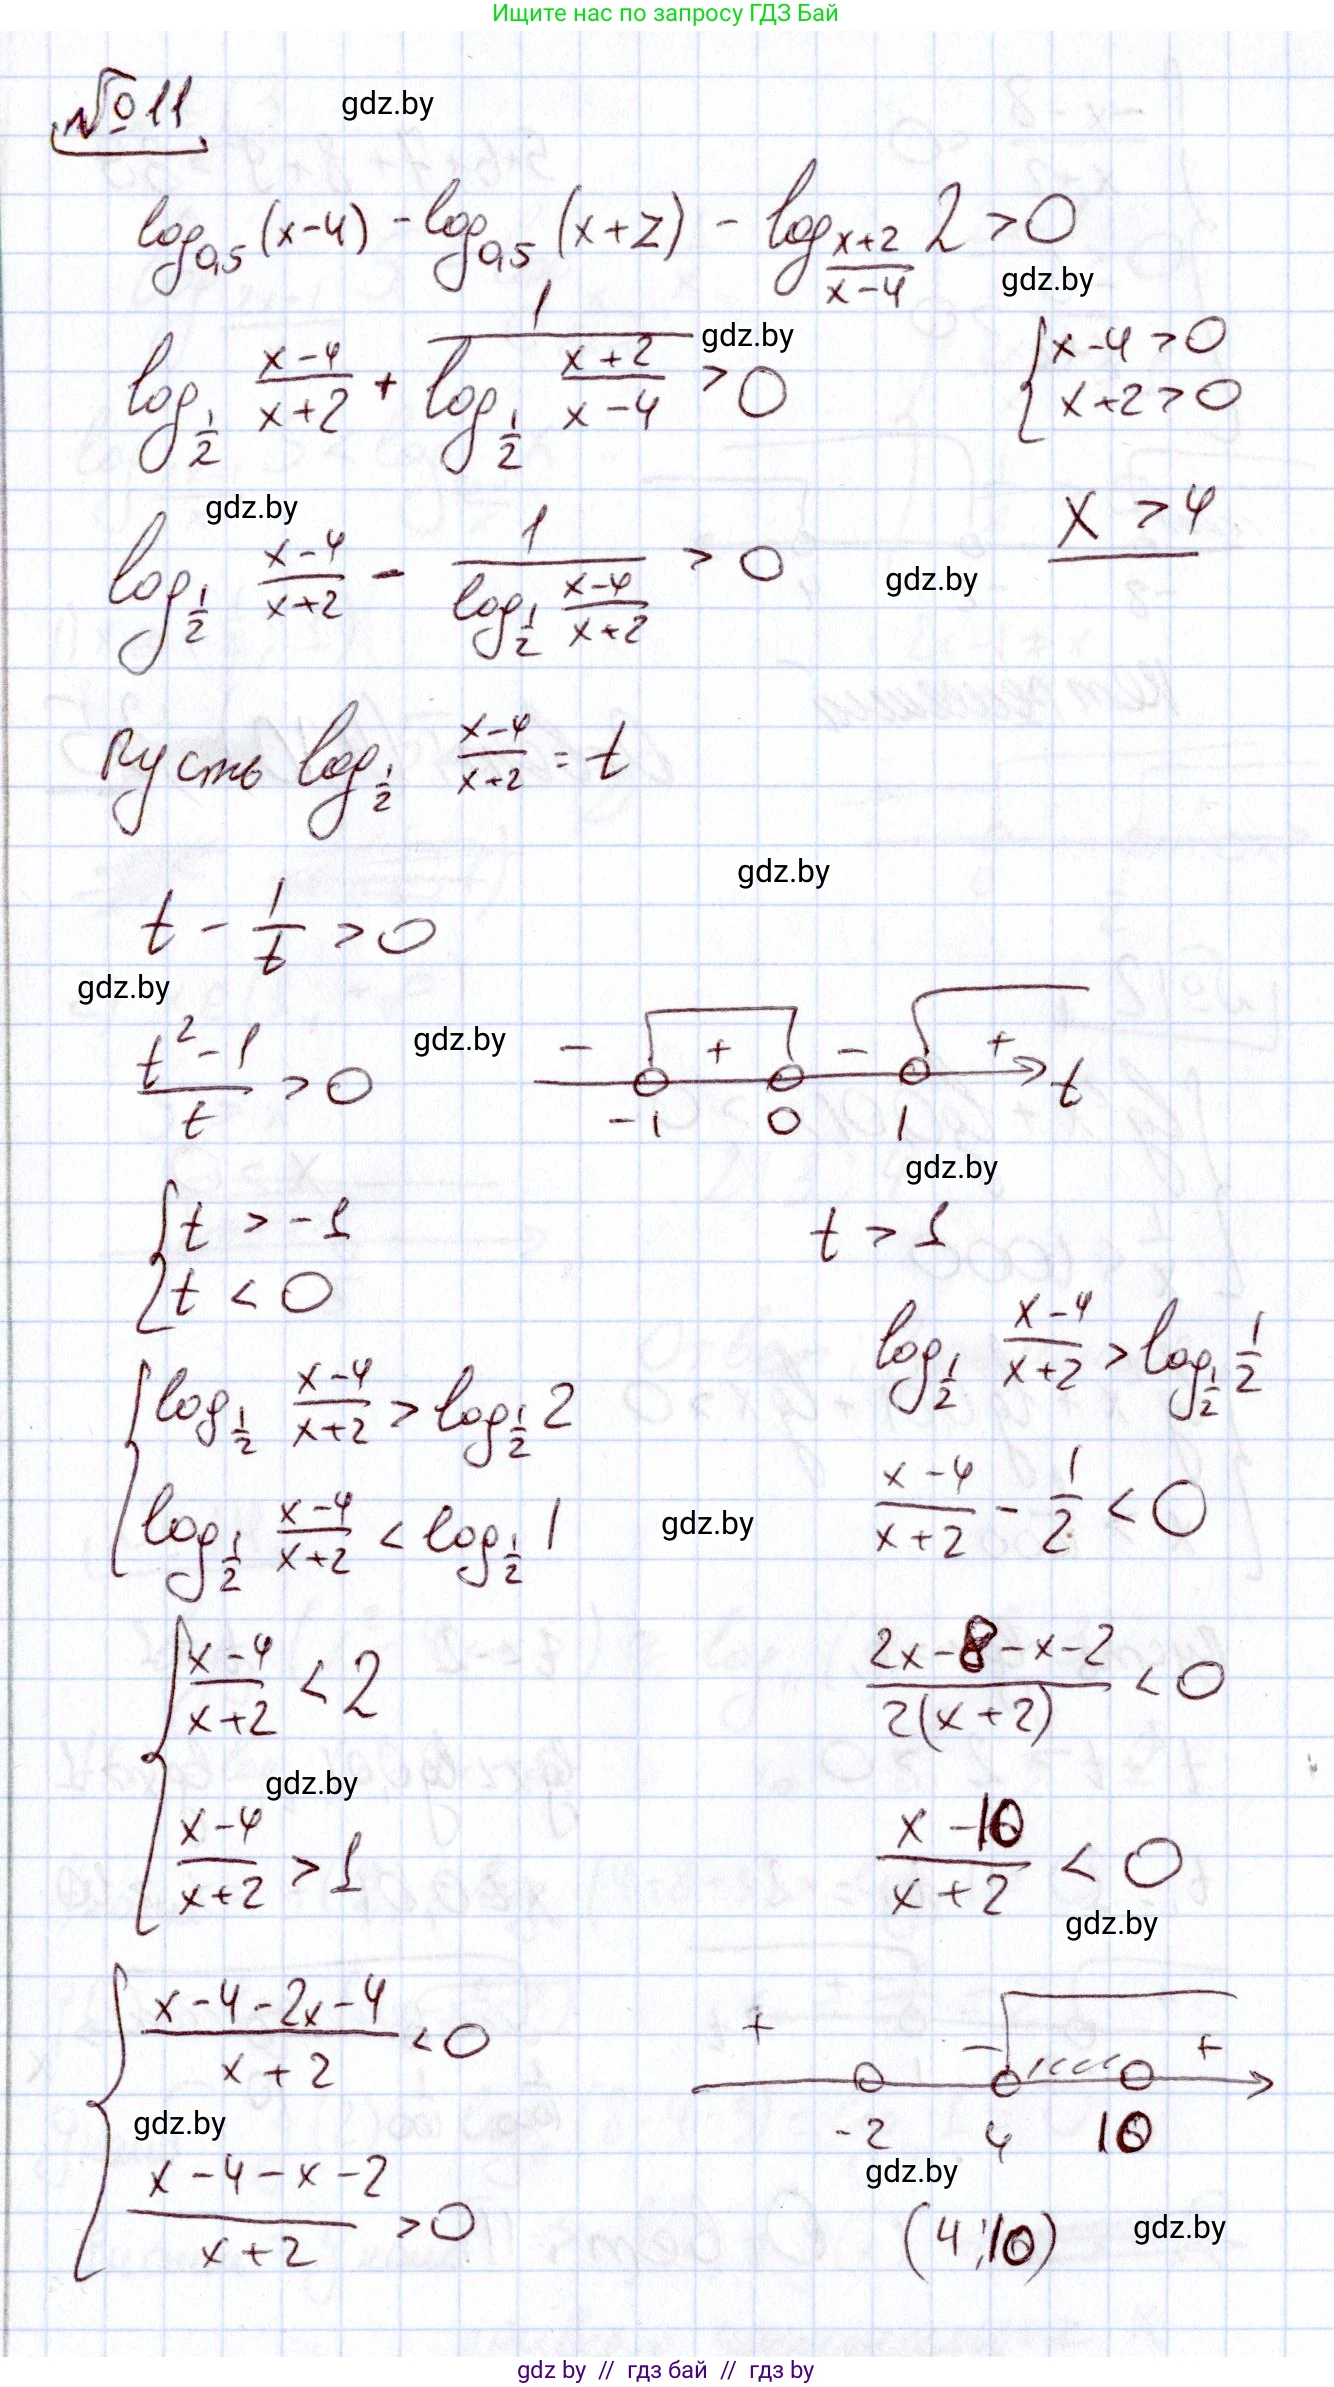 Ищите нас по запросу ГДЗ Бай
№ 11
gdz.by
log_{0,5} (x-4) - log_{0,5} (x+2) - log_{\frac{x+2}{x-4}} 2 > 0
gdz.by
log_{\frac{1}{2}} \frac{x-4}{x+2} + \frac{1}{log_{\frac{1}{2}} \frac{x+2}{x-4}} > 0
gdz.by
{ x-4 > 0
x+2 > 0
gdz.by
x > 4
log_{\frac{1}{2}} \frac{x-4}{x+2} - \frac{1}{log_{\frac{1}{2}} \frac{x-4}{x+2}} > 0
gdz.by
Пусть log_{\frac{1}{2}} \frac{x-4}{x+2} = t
gdz.by
t - \frac{1}{t} > 0
gdz.by
\frac{t^2-1}{t} > 0
gdz.by
- + - + t
-1 0 1
gdz.by
{ t > -1
t < 0
{ log_{\frac{1}{2}} \frac{x-4}{x+2} > log_{\frac{1}{2}} 2
log_{\frac{1}{2}} \frac{x-4}{x+2} < log_{\frac{1}{2}} 1
gdz.by
{ \frac{x-4}{x+2} < 2
gdz.by
\frac{x-4}{x+2} > 1
{ \frac{x-4-2x-4}{x+2} < 0
gdz.by
\frac{x-4-x-2}{x+2} > 0
t > 1
log_{\frac{1}{2}} \frac{x-4}{x+2} > log_{\frac{1}{2}} \frac{1}{2}
\frac{x-4}{x+2} - \frac{1}{2} < 0
\frac{2x-8-x-2}{2(x+2)} < 0
\frac{x-10}{x+2} < 0
gdz.by
+ - +
-2 4 10
gdz.by
(4;10)
gdz.by
gdz by // гдз бай // гдз by